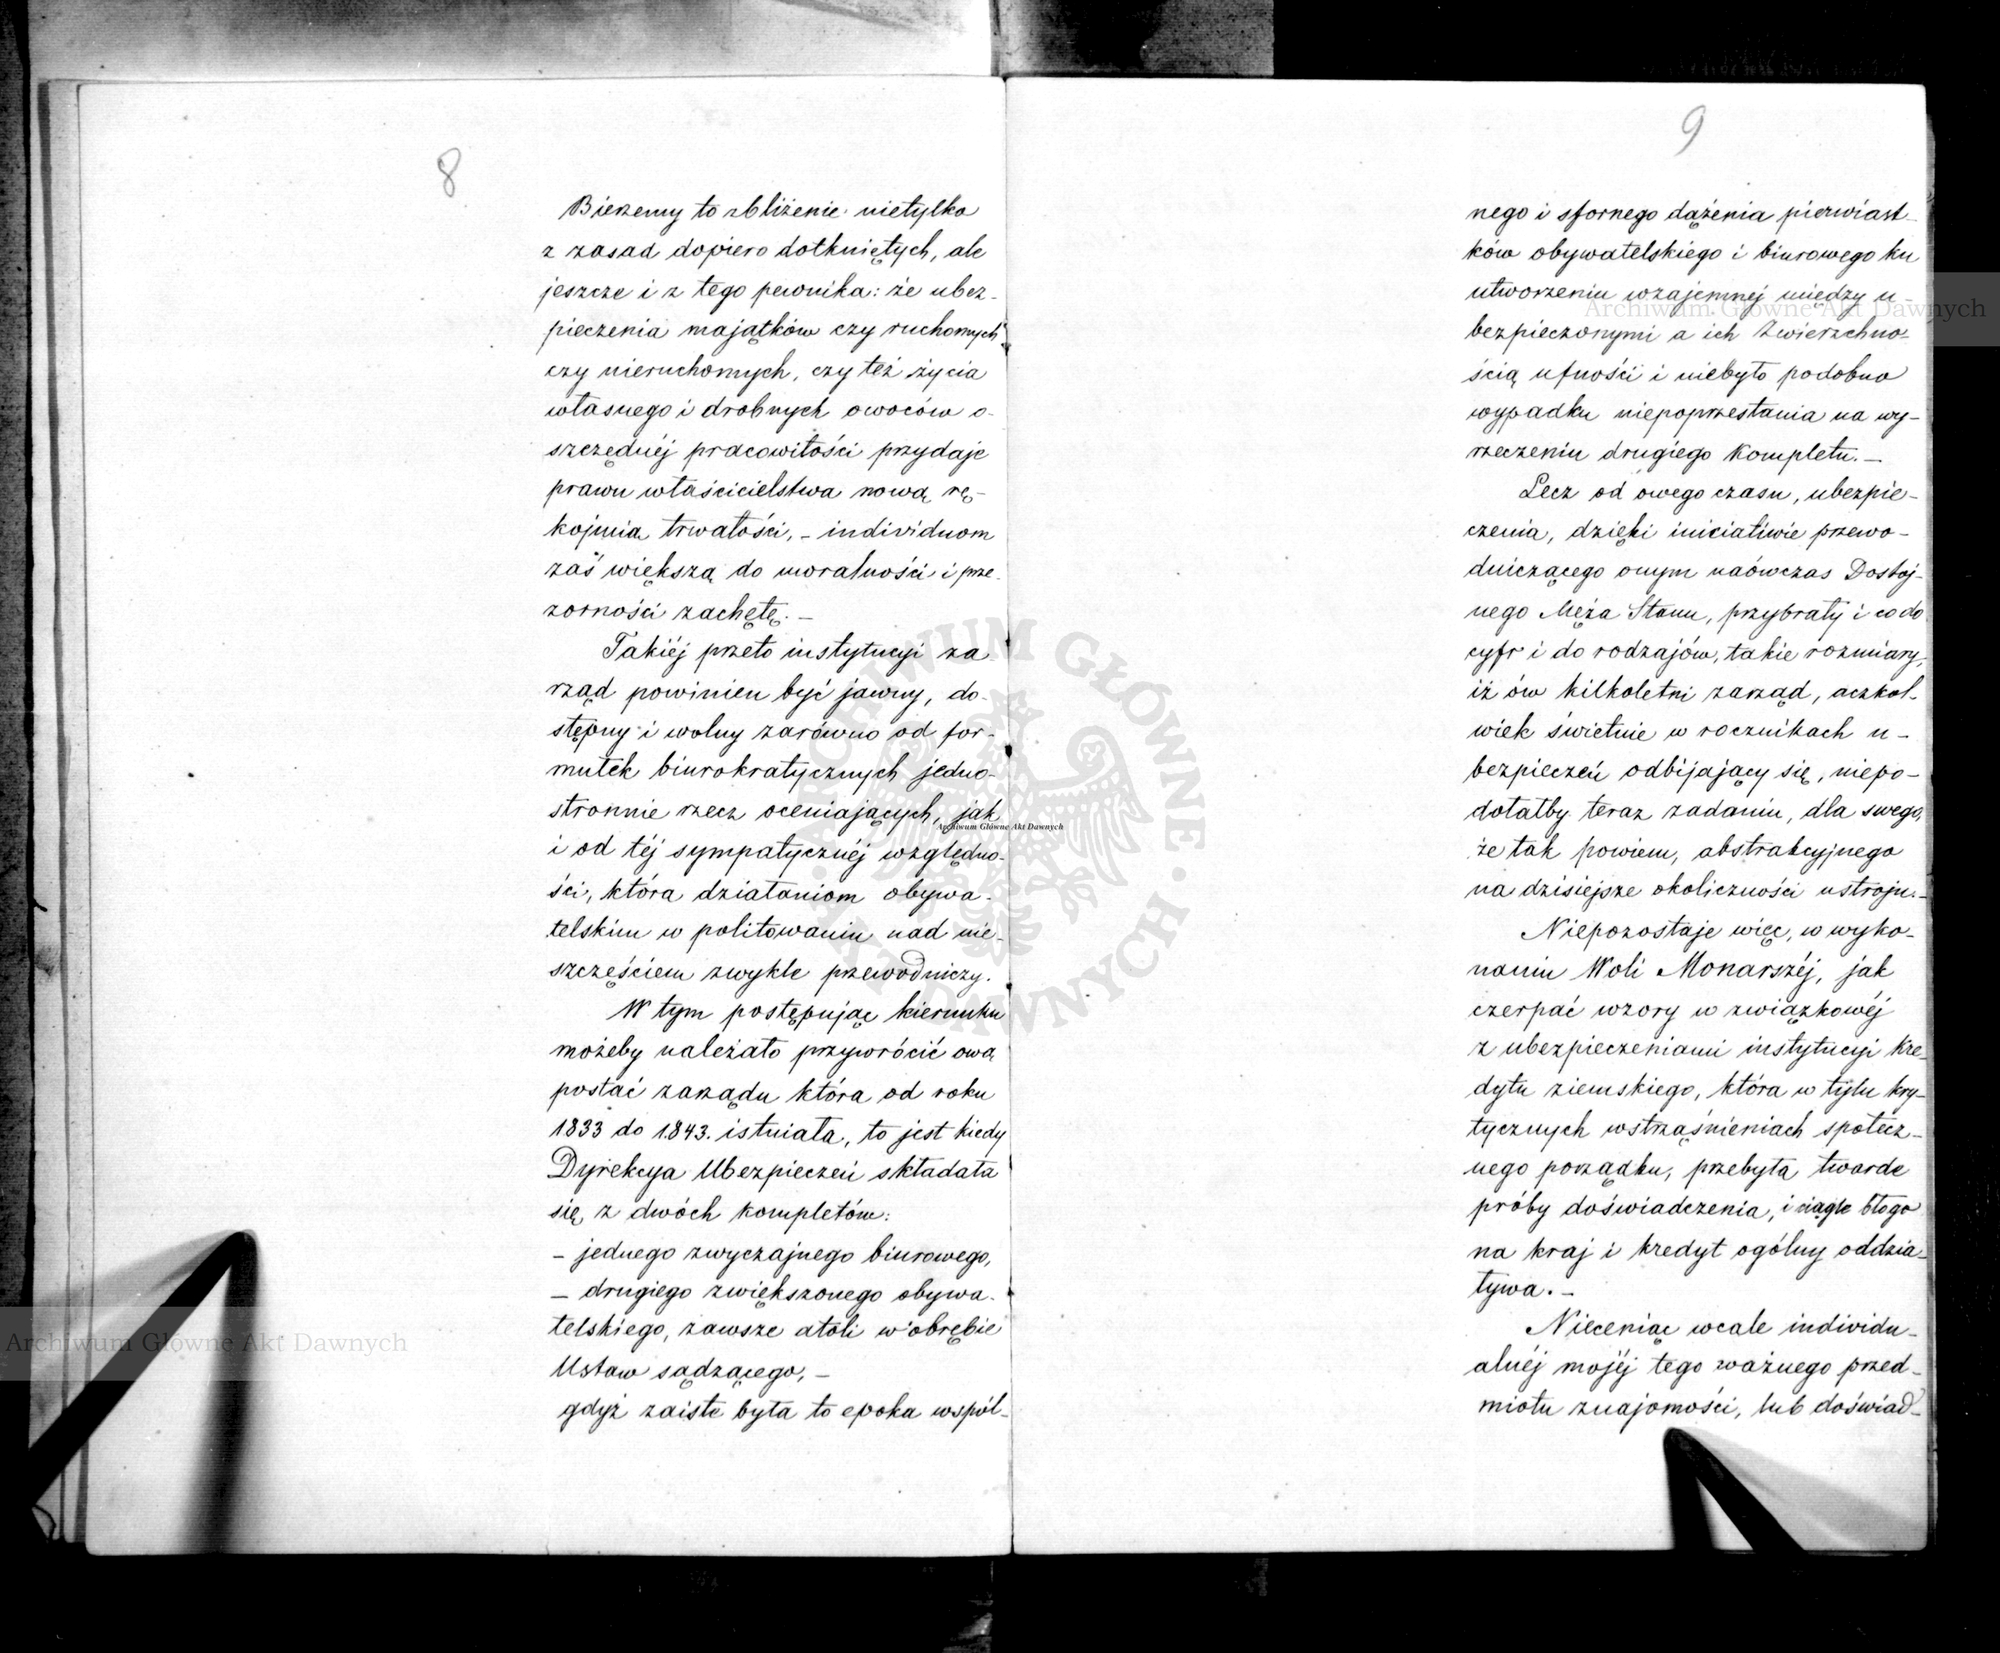 8
Bierzemy to zbliżenie nietylko
z zasad dopiero dotkniętych, ale
jeszcze i z tego pewnika: że ubez-
pieczenia majątków czy ruchomych
czy nieruchomych, czy też życia
własnego i drobnych owoców o-
szczędnéj pracowitości przydaje
prawu właścicielstwa nową rę-
kojmią trwałości, – individuom
zaś większą do moralności i prze-
zorności zachętę. –
Takiéj przeto instytucyi za-
rząd powinien być jawny, do-
stępny i wolny zarówno od for-
mułek biurokratycznych jedno-
stronnie rzecz oceniających, jak
i od téj sympatycznéj względno-
ści, która działaniom obywa-
telskim w politowaniu nad nie-
szczęściem zwykle przewodniczy.
W tym postępując kierunku
możeby należało przywrócić ową
postać zarządu która od roku
1833 do 1843. istniała, to jest kiedy
Dyrekcya Ubezpieczeń składała
się z dwóch kompletów:
– jednego zwyczajnego biurowego,
– drugiego zwiększonego obywa-
telskiego, zawsze atoli w obrębie
Ustaw sądzącego, –
gdyż zaiste była to epoka wspól-
9
nego i sfornego dążenia pierwiast-
ków obywatelskiego i biurowego ku
utworzeniu wzajemnej między u-
bezpieczonymi a ich Zwierzchno-
ścią ufności i niebyło podobno
wypadku niepoprzestania na wy-
rzeczeniu drugiego kompletu. –
Lecz od owego czasu, ubezpie-
czenia, dzięki iniciatiwie przewo-
dniczącego onym naówczas Dostoj-
nego Męża Stanu, przybrały i co do
cyfr i do rodzajów, takie rozmiary,
iż ów kilkoletni zarząd, aczkol-
wiek świetnie w rocznikach u-
bezpieczeń odbijający się, niepo-
dołałby teraz zadaniu, dla swego,
że tak powiem, abstrakcyjnego
na dzisiejsze okoliczności ustroju. –
Niepozostaje więc, w wyko-
naniu Woli Monarszéj, jak
czerpać wzory w związkowéj
z ubezpieczeniami instytucyi kre-
dytu ziemskiego, która w tylu kry-
tycznych wstrząśnieniach społecz-
nego porządku, przebyła twarde
próby doświadczenia, i ciągle błogo
na kraj i kredyt ogólny oddzia-
ływa. –
Nieceniąc wcale individu-
alnéj mojéj tego ważnego przed-
miotu znajomości, lub doświad-
Archiwum Główne Akt Dawnych
Archiwum Główne Akt Dawnych
Archiwum Główne Akt Dawnych
ARCHIWUM GŁÓWNE AKT DAWNYCH